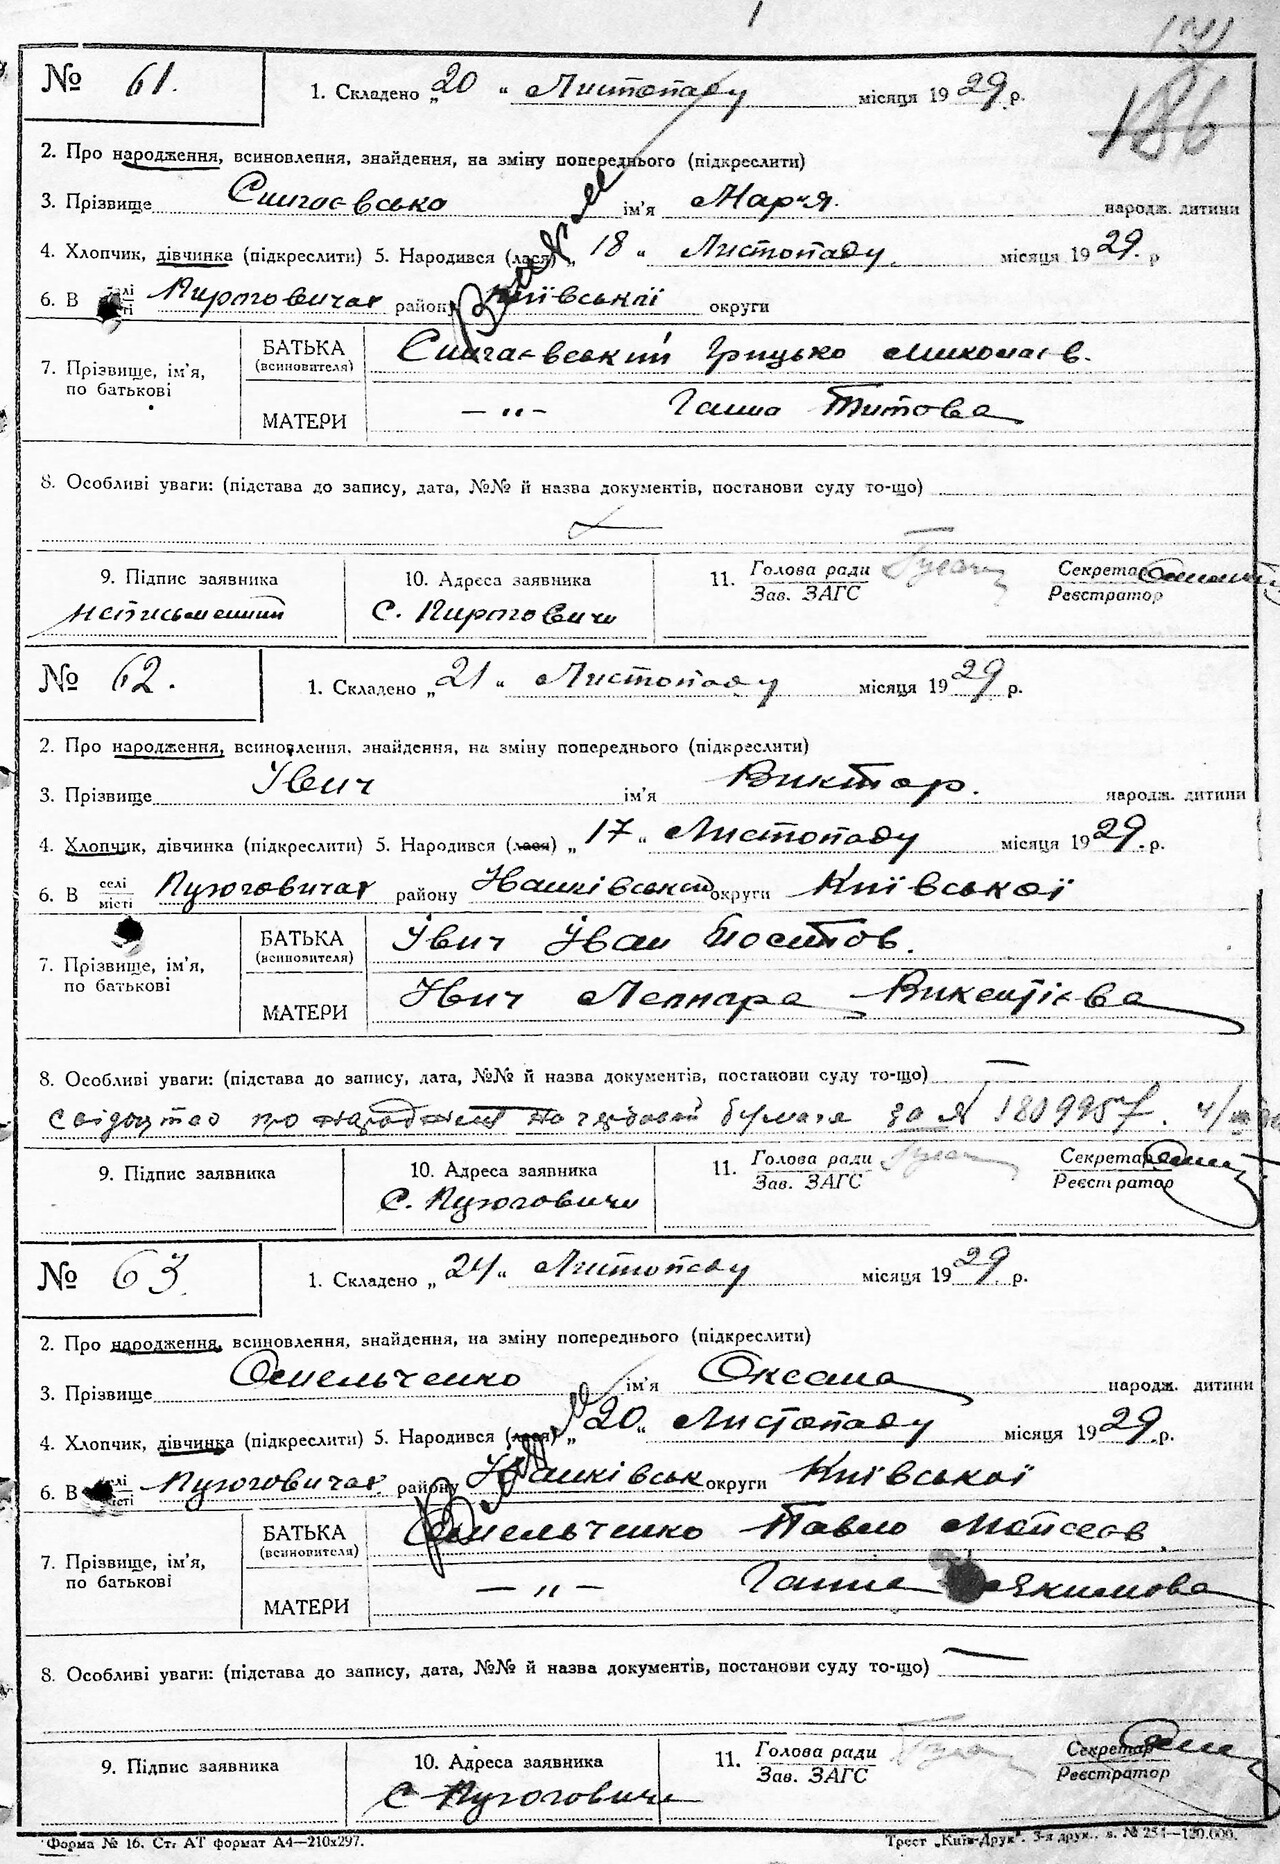 186
№ 61. 1. Складено „20" Листопаду місяця 1929 р.
2. Про народження, всиновлення, знайдення, на зміну попереднього (підкреслити)
3. Прізвище Сингаєвсько ім'я Марія. народж. дитини
4. Хлопчик, дівчинка (підкреслити) 5. Народився (лася) „18" Листопаду місяця 1929. р
6. В селі місті Пироговичах району Київської округи
7. Прізвище, ім'я, по батькові
БАТЬКА (всиновителя) Сингаєвський Грицько Миколаєв.
МАТЕРИ — „ — Ганна Титова
8. Особливі уваги: (підстава до запису, дата, №№ й назва документів, постанови суду то-що)
9. Підпис заявника 10. Адреса заявника 11. Голова ради Секретар
Зав. ЗАГС Реєстратор
неписьменний с. Пироговичи
№ 62. 1. Складено „21" Листопаду місяця 1929 р.
2. Про народження, всиновлення, знайдення, на зміну попереднього (підкреслити)
3. Прізвище Івич ім'я Виктор. народж. дитини
4. Хлопчик, дівчинка (підкреслити) 5. Народився (лася) „17" Листопаду місяця 1929. р.
6. В селі місті району округи Київської
7. Прізвище, ім'я, по батькові
БАТЬКА (всиновителя) Івич Іван
МАТЕРИ Івич Викентієва
8. Особливі уваги: (підстава до запису, дата, №№ й назва документів, постанови суду то-що)
про на бумага за № 1809957.
9. Підпис заявника 10. Адреса заявника 11. Голова ради Секретар
Зав. ЗАГС Реєстратор
с.
№ 63 1. Складено „24" Листопаду місяця 1929 р.
2. Про народження, всиновлення, знайдення, на зміну попереднього (підкреслити)
3. Прізвище Омельченко ім'я Оксана народж. дитини
4. Хлопчик, дівчинка (підкреслити) 5. Народився (лася) „20" Листопаду місяця 1929. р.
6. В селі місті району округи Київської
7. Прізвище, ім'я, по батькові
БАТЬКА (всиновителя) Омельченко Павло Мойсеєв.
МАТЕРИ — „ — Ганна Якимова
8. Особливі уваги: (підстава до запису, дата, №№ й назва документів, постанови суду то-що)
9. Підпис заявника 10. Адреса заявника 11. Голова ради Секретар
Зав. ЗАГС Реєстратор
с.
Форма № 16. Ст. АТ формат А4—210x297. Трест „Київ-Друк". 3-я друк., з. № 254—120.000.